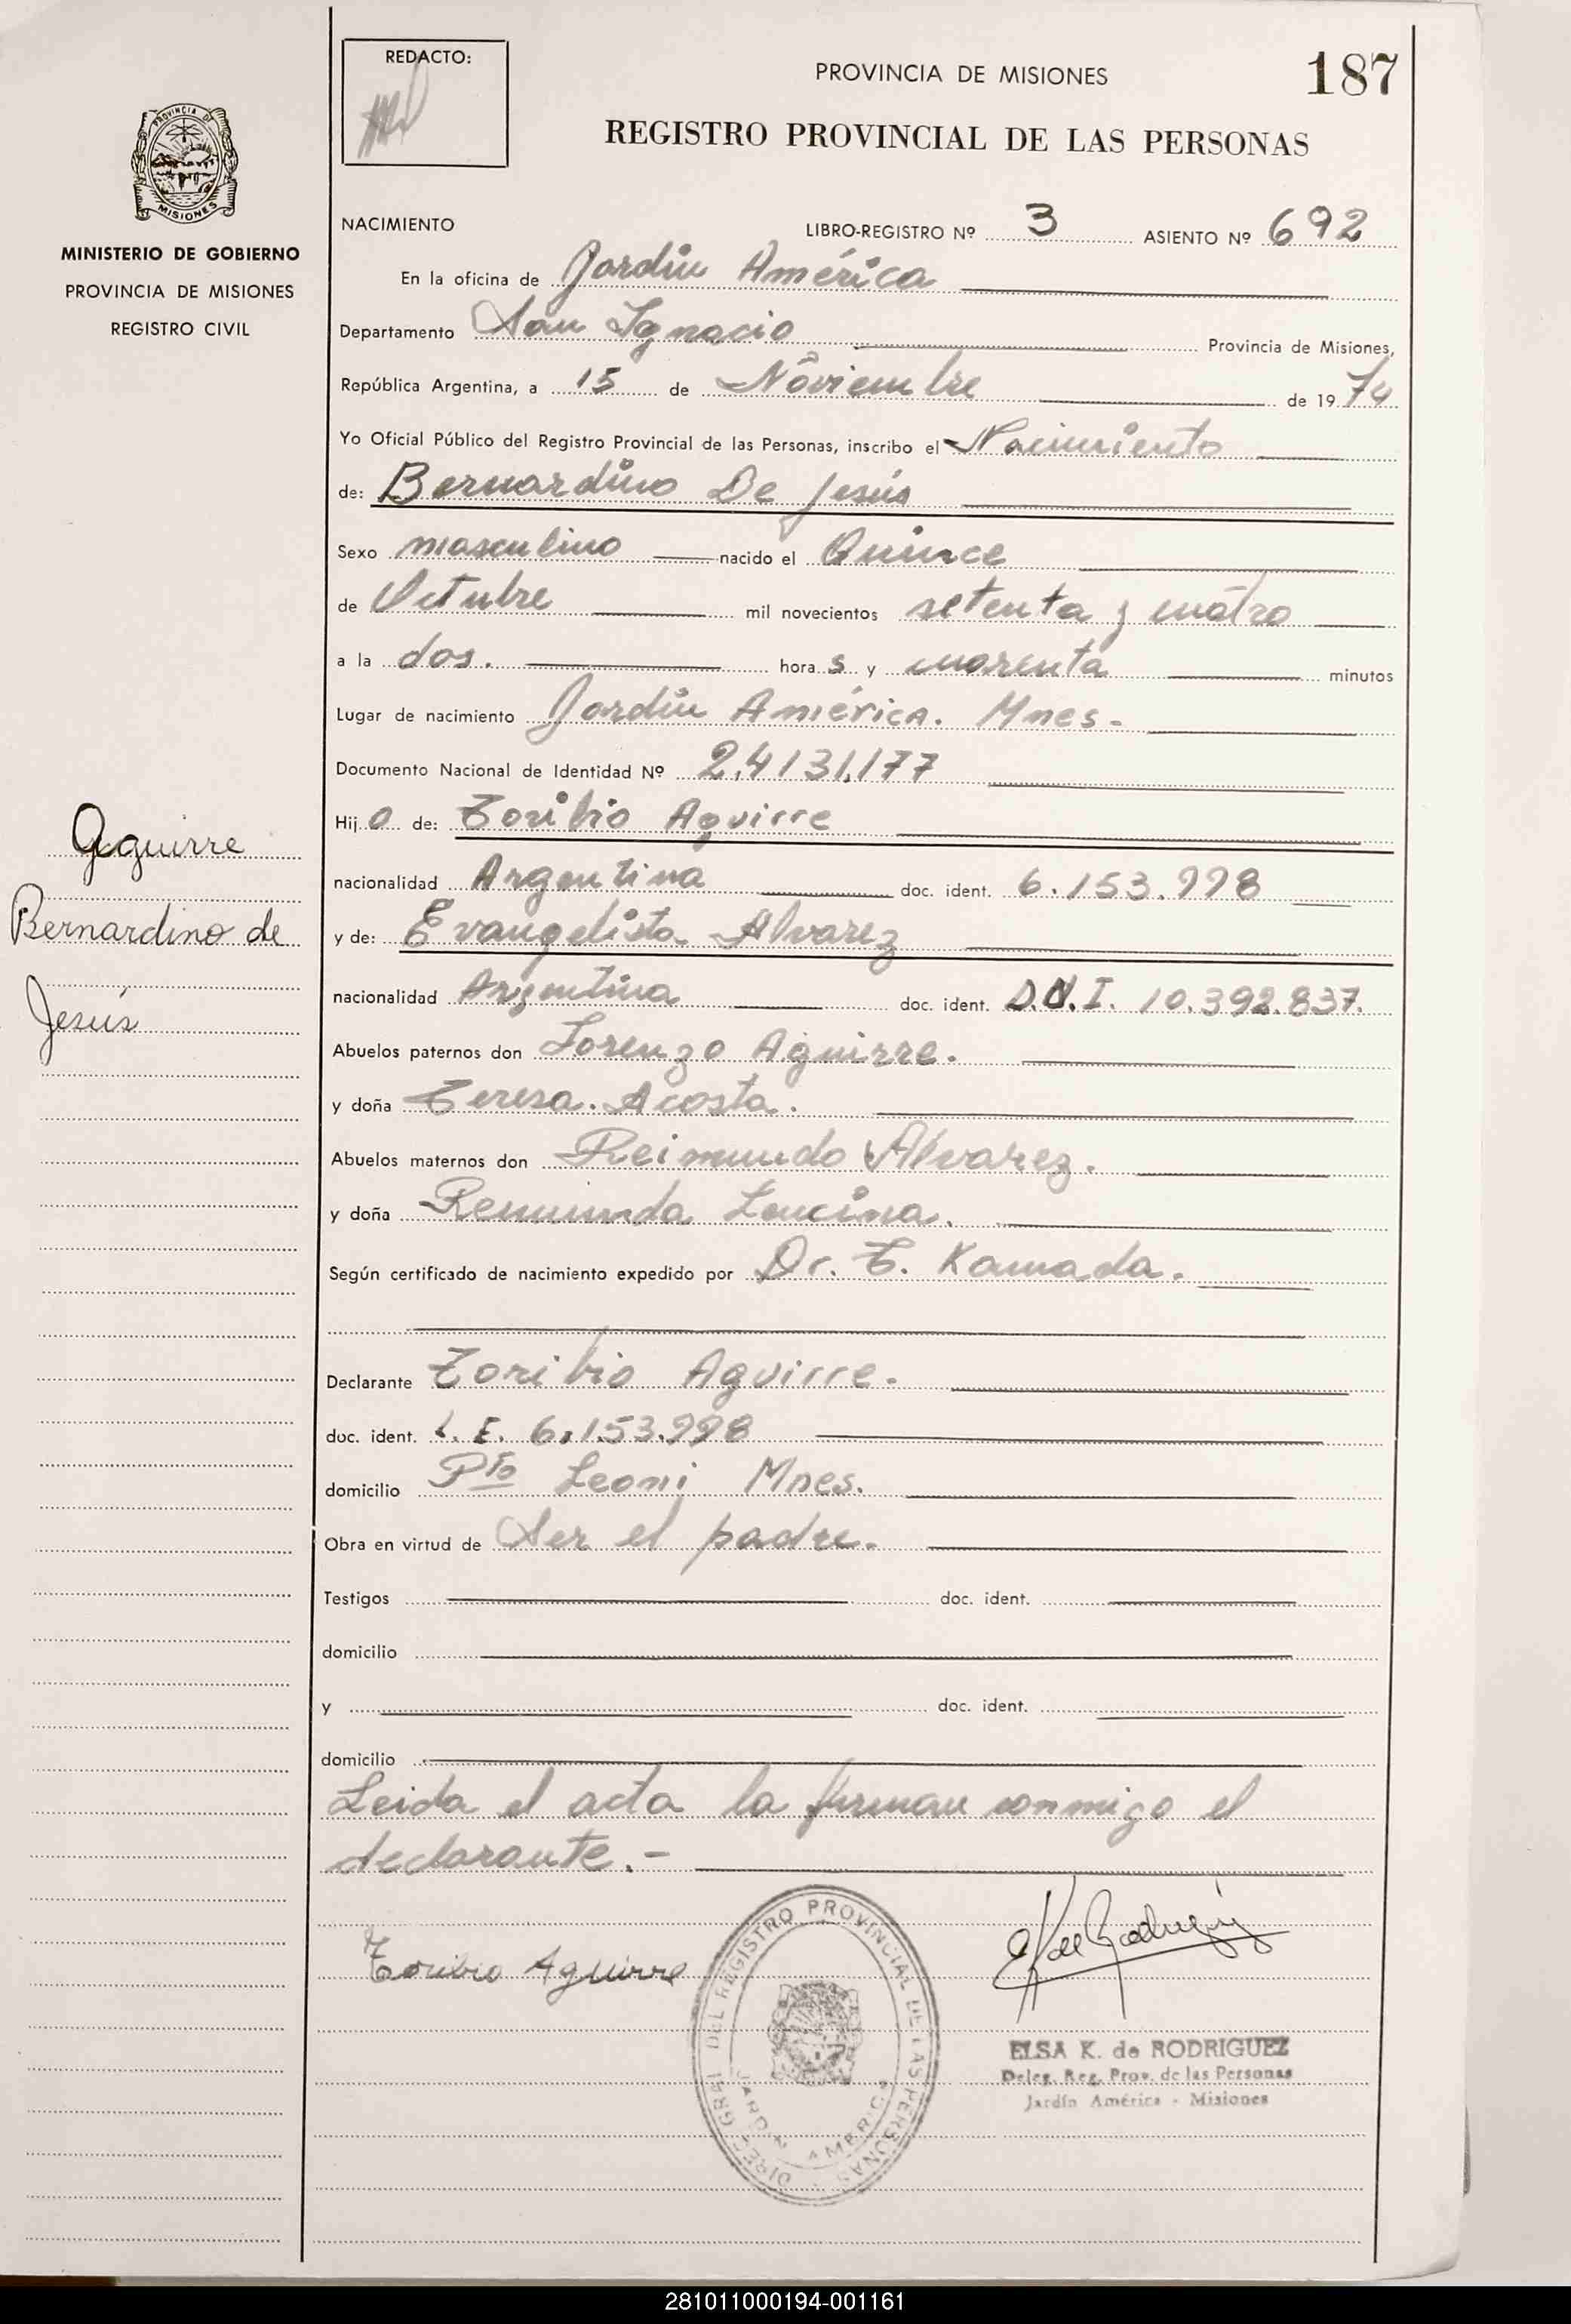 REDACTO:
PROVINCIA DE MISIONES
187
REGISTRO PROVINCIAL DE LAS PERSONAS
PROVINCIA D
MISIONES
MINISTERIO DE GOBIERNO
PROVINCIA DE MISIONES
REGISTRO CIVIL
NACIMIENTO LIBRO-REGISTRO Nº 3 ASIENTO Nº 692
En la oficina de Jardin América
Departamento San Ignacio Provincia de Misiones,
República Argentina, a 15 de Noviembre de 1974
Yo Oficial Público del Registro Provincial de las Personas, inscribo el Nacimiento
de: Bernardino De Jesús
Sexo masculino nacido el Quince
de Octubre mil novecientos setenta y cuatro
a la dos. hora s y cuarenta minutos
Lugar de nacimiento Jardin América. Mnes-
Documento Nacional de Identidad Nº 24131,177
Hijo de: Toribio Aguirre
nacionalidad Argentina doc. ident. 6.153.998
y de: Evangelista Alvarez
nacionalidad Argentina doc. ident. D.N.I. 10.392.837.
Aguirre
Bernardino de
Jesús
Abuelos paternos don Lorenzo Aguirre.
y doña Teresa. Acosta.
Abuelos maternos don Reimundo Alvarez.
y doña
Según certificado de nacimiento expedido por Dr. T. Kamada.
Declarante Toribio Aguirre.
doc. ident. L.E. 6.153.998
domicilio Pto Leoni Mnes.
Obra en virtud de Ser el padre.
Testigos doc. ident.
domicilio
y doc. ident.
domicilio
Leida el acta la firman conmigo el
declarante.-
Toribio Aguirre
DIREC. GRAL. DEL REGISTRO PROVINCIAL DE LAS PERSONAS
JARDIN AMERICA
ELSA K. de RODRIGUEZ
Deleg. Reg. Prov. de las Personas
Jardín América - Misiones
281011000194-001161